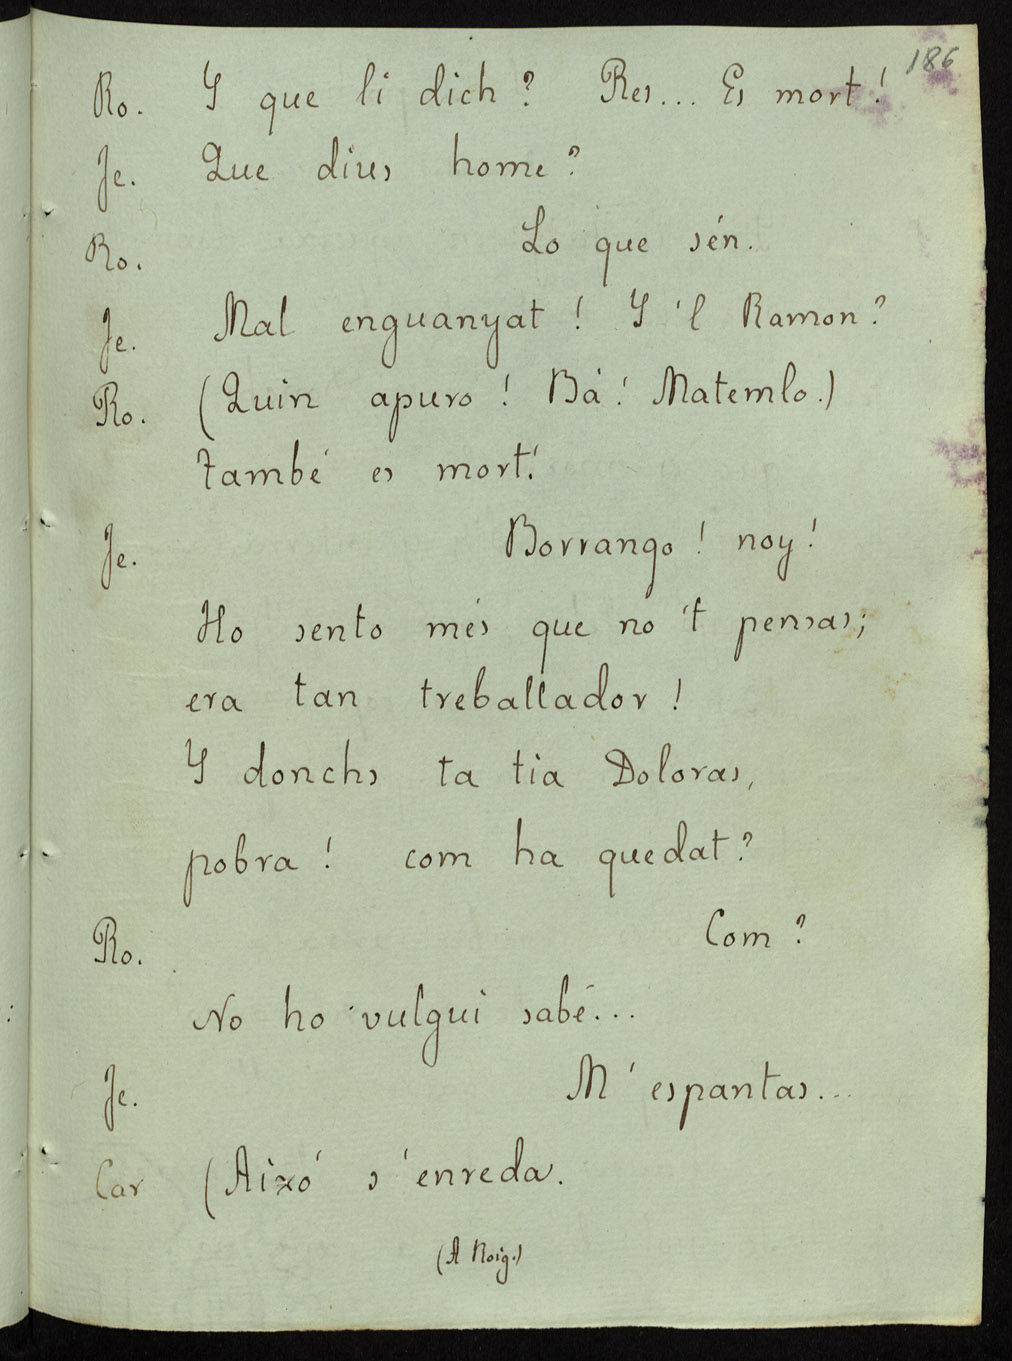 186
Ro. Y que li dich? Res... Es mort!
Je. Que dius home?
Ro. Lo que sén.
Je. Mal enguanyat! Y 'l Ramon?
Ro. (Quin apuro! Bá! Matemlo.)
També es mort!
Je. Borrango! noy!
Ho sento més que no 't pensas;
era tan treballador!
Y donchs ta tia Doloras,
pobra! com ha quedat?
Ro. Com?
No ho vulgui sabé...
Je. M' espantas...
Car (Aixó s'enreda.
(A Roig.)